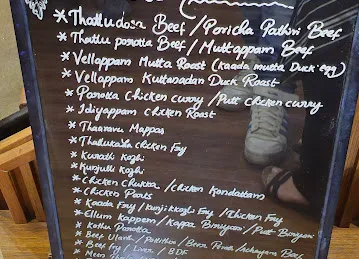 * Thattudosa Beef / Poricha Pathri Beef
* Thattu porotta Beef / Muttappam Beef
* Vellappam Mutta Roast (kaada mutta Duck egg)
* Vellappam Kuttanadan Duck Roast
* Porotta chicken curry / Putt chicken curry
* Idiyappam chicken Roast
* Thaaravu Mappas
* Thattukada chicken Fry
* Kurathi Kozhi
* Kunjulli Kozhi
* Chicken Chukka / chicken Kondattam
* Chicken Parts
* Kaada Fry / Kunjikkozhi Fry / Chicken Fry
* Ellum kappem / Kappa Biriyani / Putt Biriyani
* Kothu Porotta
* Beef Ularth /
* Beef fry / Liver / BDF
* Meen